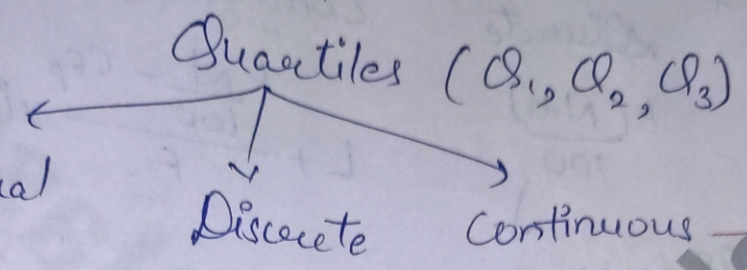 Quartiles (Q1, Q2, Q3)
Discrete Continuous